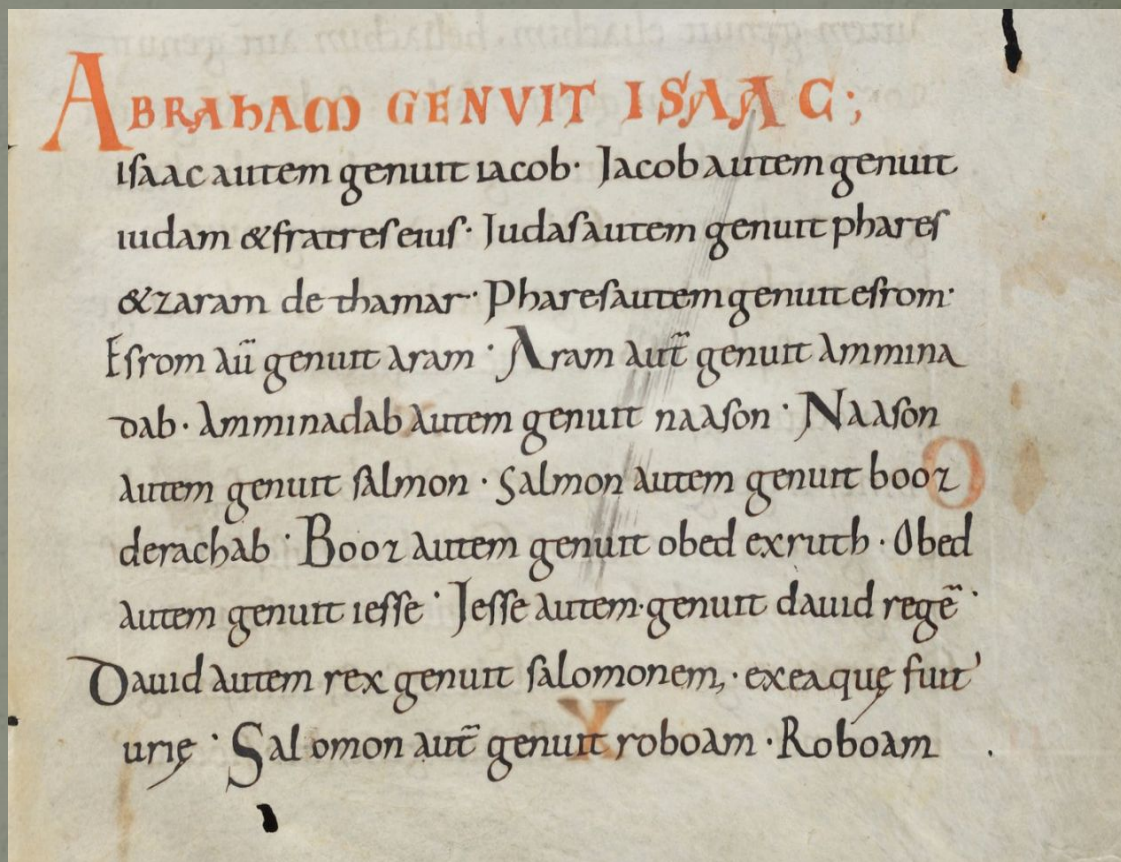 ABRAHAM GENVIT ISAAC;
isaac autem genuit iacob· Jacob autem genuit
iudam & fratres eius· Judas autem genuit phares
& zaram de thamar· Phares autem genuit esrom·
Esrom aū genuit aram· Aram aut̄ genuit ammina
dab· Amminadab autem genuit naason· Naason
autem genuit salmon· Salmon autem genuit booz
derachab· Booz autem genuit obed exruth· Obed
autem genuit iesse· Jesse autem·genuit dauid regē·
Dauid autem rex genuit salomonem,· exeaquę fuit
urię· Salomon aut̄ genuit roboam· Roboam